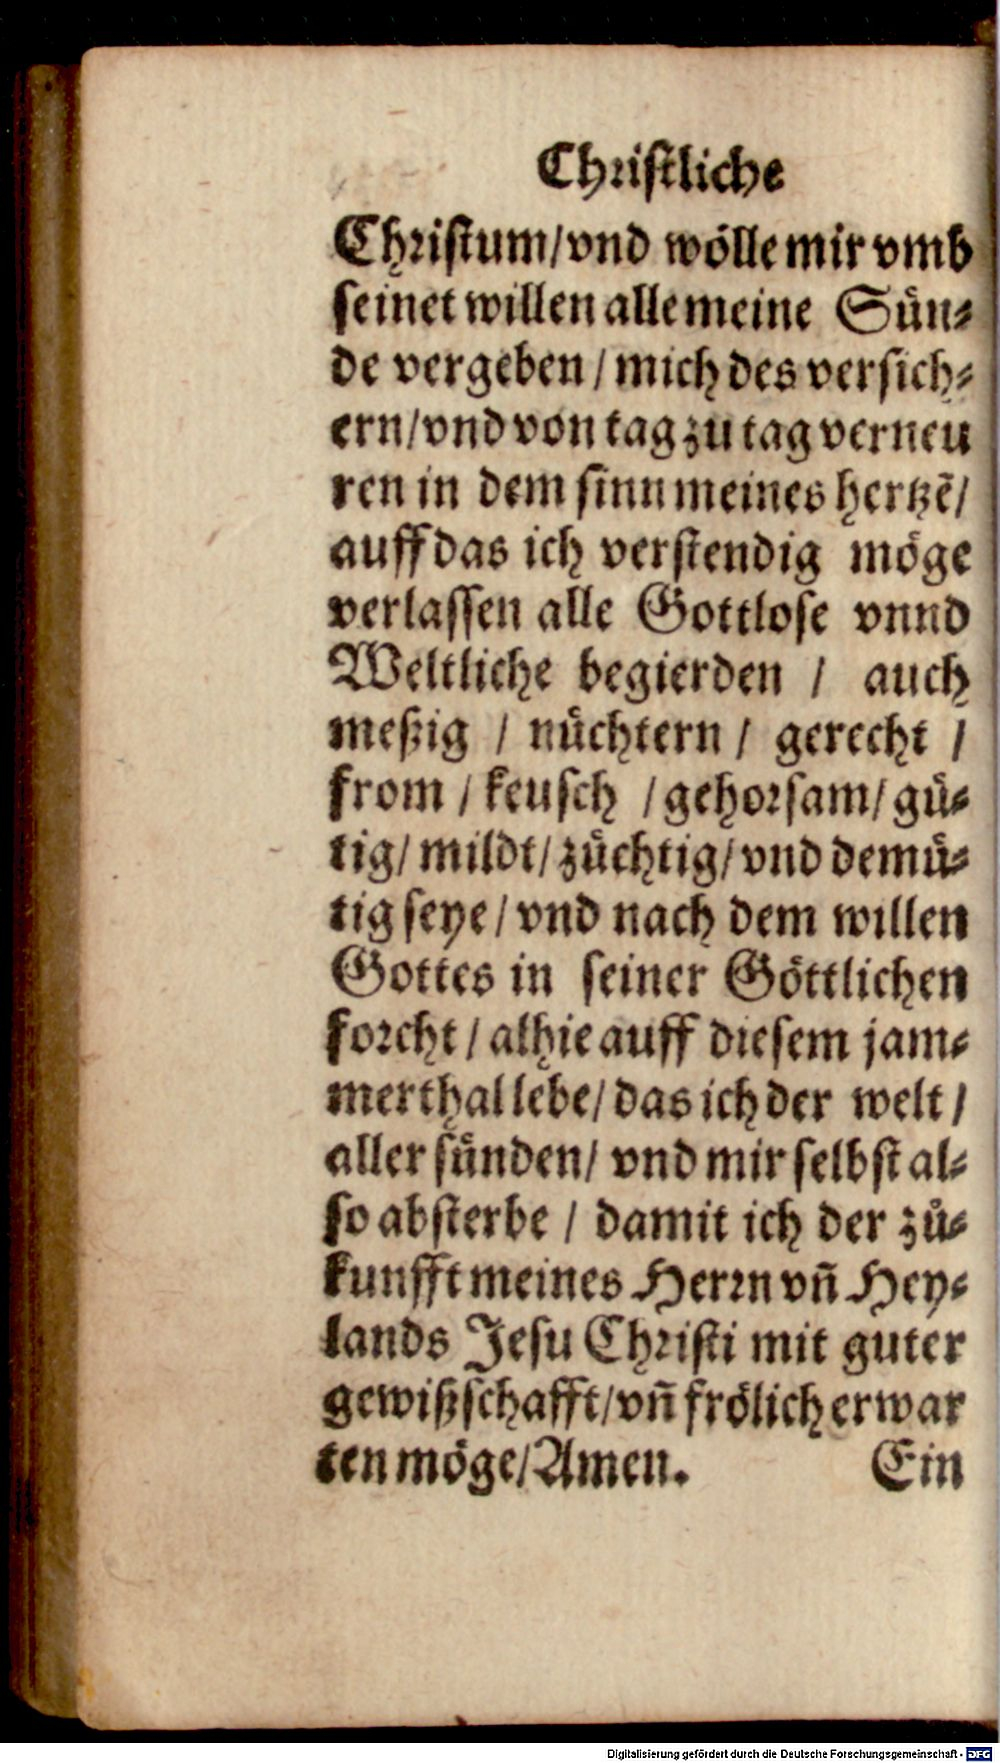 Christliche
Christum/vnd wölle mir vmb
seinet willen alle meine Sün-
de vergeben / mich des versich-
ern/vnd von tag zu tag verneu
ren in dem sinn meines hertzẽ/
auff das ich verstendig möge
verlassen alle Gottlose vnnd
Weltliche begierden / auch
meßig / nüchtern / gerecht /
from / keusch / gehorsam/ gü-
tig/ mildt/ züchtig/ vnd demü-
tig seye / vnd nach dem willen
Gottes in seiner Göttlichen
forcht / alhie auff diesem jam-
merthal lebe/ das ich der welt /
aller sünden/ vnd mir selbst al-
so absterbe / damit ich der zů-
kunfft meines Herrn vñ Hey-
lands Jesu Christi mit guter
gewißschafft/vñ frölich erwar
ten möge/Amen. Ein
Digitalisierung gefördert durch die Deutsche Forschungsgemeinschaft - DFG